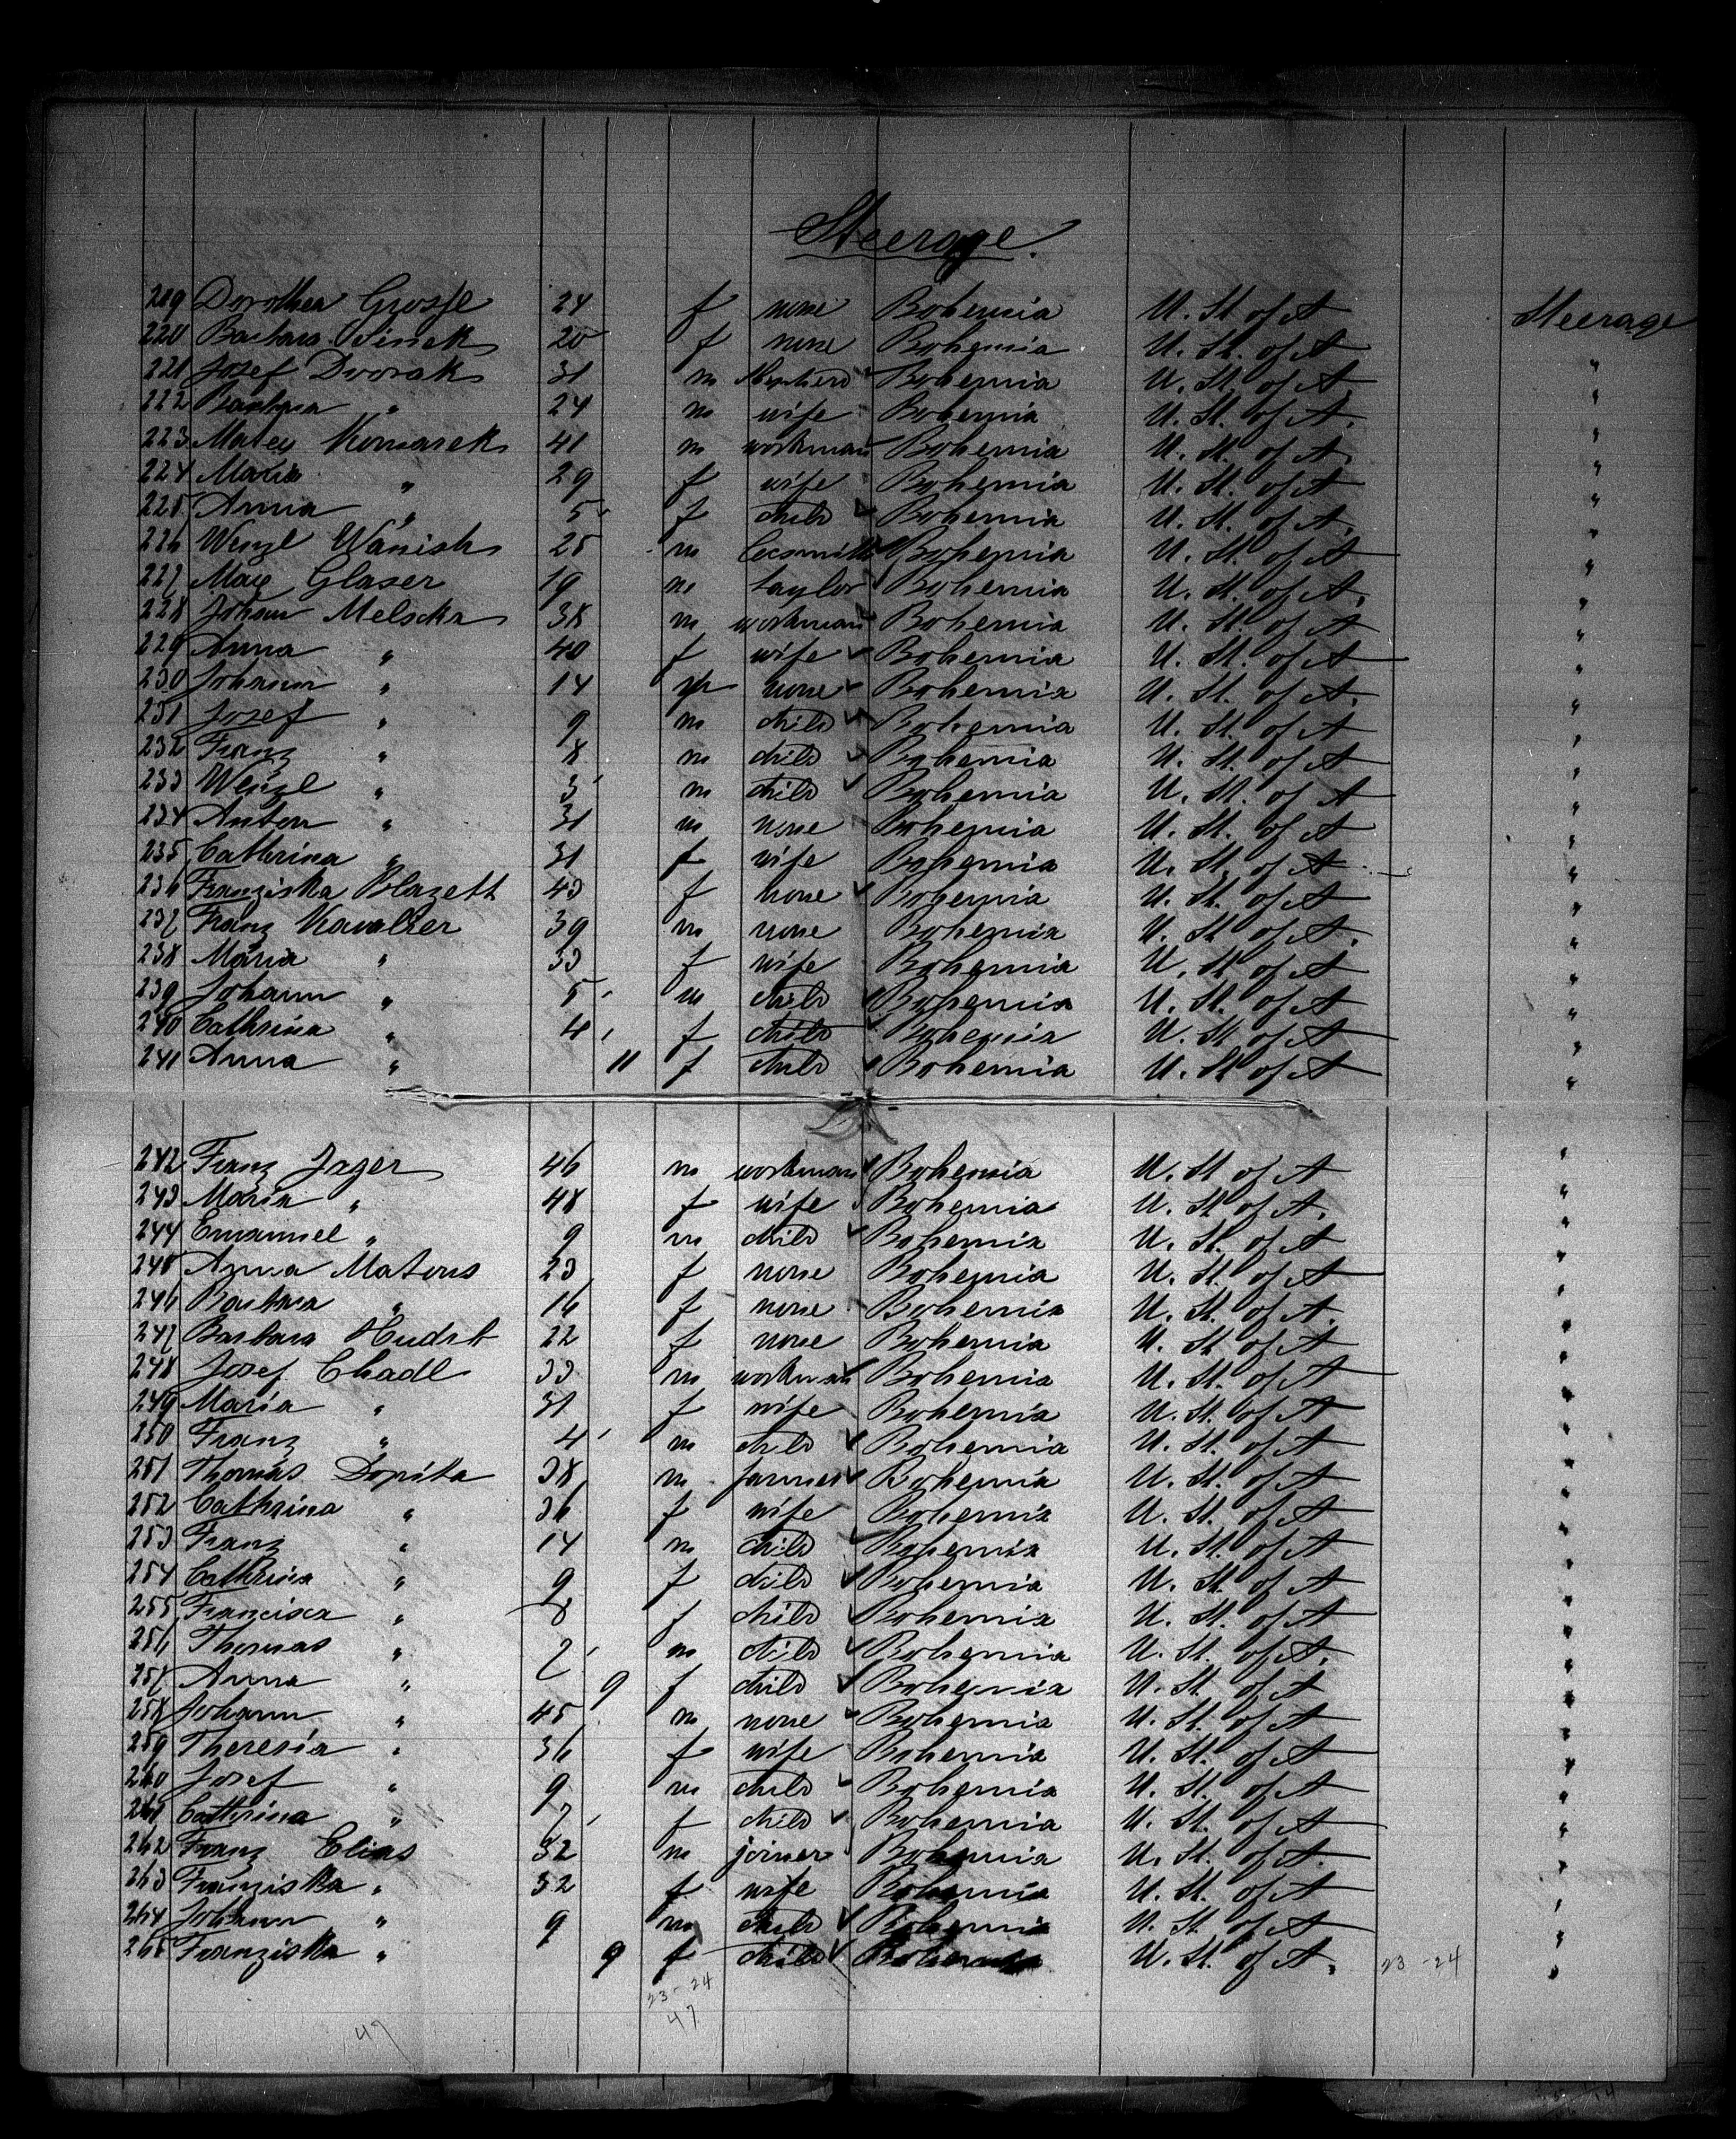 Steerage.
219 Dorothea Grosse 24 f none Bohemia U. St. of A Steerage
220 Barbara 20 f none Bohemia U. St. of A "
221 Josef Dvorak 31 m Shepherd Bohemia U. St. of A "
222 Barbara " 24 m wife Bohemia U. St. of A. "
223 Komarek 41 m workman Bohemia U. St. of A. "
224 Maria " 29 f wife Bohemia U. St. of A "
225 Anna " 5 f child Bohemia U. St. of A. "
226 Wenzl Wanish 25 m Bohemia U. St. of A "
227 Max Glaser 19 m taylor Bohemia U. St. of A. "
228 Johann 38 m workman Bohemia U. St. of A "
229 Anna " 40 f wife Bohemia U. St. of A "
230 Johann " 14 m none Bohemia U. St. of A. "
231 Josef " 9 m child Bohemia U. St. of A "
232 Franz " 8 m child Bohemia U. St. of A "
233 Wenzl " 3 m child Bohemia U. St. of A "
234 Anton " 31 m none Bohemia U. St. of A "
235 Cathrina " 31 f wife Bohemia U. St. of A "
236 Franziska Blazett 43 f none Bohemia U. St. of A "
237 Franz Kavalier 39 m none Bohemia U. St. of A. "
238 Maria " 33 f wife Bohemia U. St. of A "
239 Johann " 5 m child Bohemia U. St. of A "
240 Cathrina " 4 f child Bohemia U. St. of A "
241 Anna " 11 f child Bohemia U. St. of A "
242 Franz Jager 46 m workman Bohemia U. St. of A "
243 Maria " 48 f wife Bohemia U. St. of A. "
244 Emanuel " 9 m child Bohemia U. St. of A "
245 Anna Matous 23 f none Bohemia U. St. of A "
246 Barbara " 16 f none Bohemia U. St. of A. "
247 Barbara 22 f none Bohemia U. St. of A "
248 Josef Chadl 33 m workman Bohemia U. St. of A "
249 Maria " 31 f wife Bohemia U. St. of A "
250 Franz " 4 m child Bohemia U. St. of A "
251 Thomas Dopita 38 m farmer Bohemia U. St. of A "
252 Cathrina " 36 f wife Bohemia U. St. of A "
253 Franz " 14 m child Bohemia U. St. of A "
254 Cathrina " 9 f child Bohemia U. St. of A "
255 Francisca " 8 f child Bohemia U. St. of A "
256 Thomas " 2 m child Bohemia U. St. of A. "
257 Anna " 9 f child Bohemia U. St. of A "
258 Johann " 45 m none Bohemia U. St. of A "
259 Theresia " 36 f wife Bohemia U. St. of A "
260 Josef " 9 m child Bohemia U. St. of A "
261 Cathrina " 7 f child Bohemia U. St. of A "
262 Franz Elias 32 m joiner Bohemia U. St. of A. "
263 Franziska " 32 f wife Bohemia U. St. of A "
264 Johann " 9 m child Bohemia U. St. of A "
265 Franziska " 9 f child Bohemia U. St. of A. 23-24 "
23-24
47
47